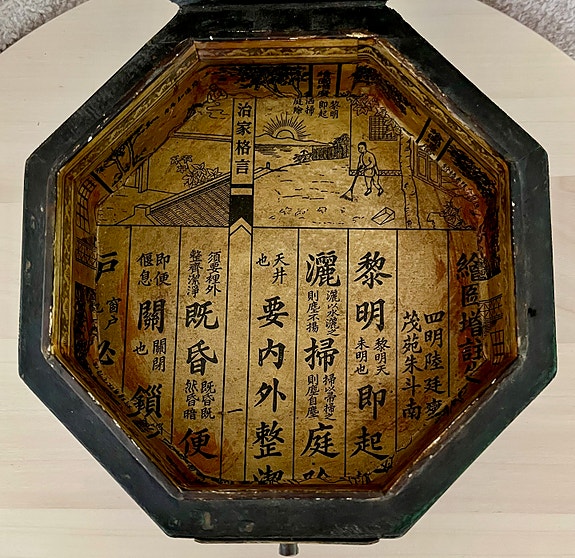 黎明
即起
治家格言
繪圖增註
四明陸廷
茂苑朱斗南
黎明 黎明天未明也 即起
灑 灑以水灑之則塵不揚 掃 掃以帚掃之則自塵 庭
天井也 要內外整潔
一
須要裡外整齊潔淨 既昏 既昏既然昏暗 便
即便偃息 關 關閉也 鎖
戶 窗戶 必